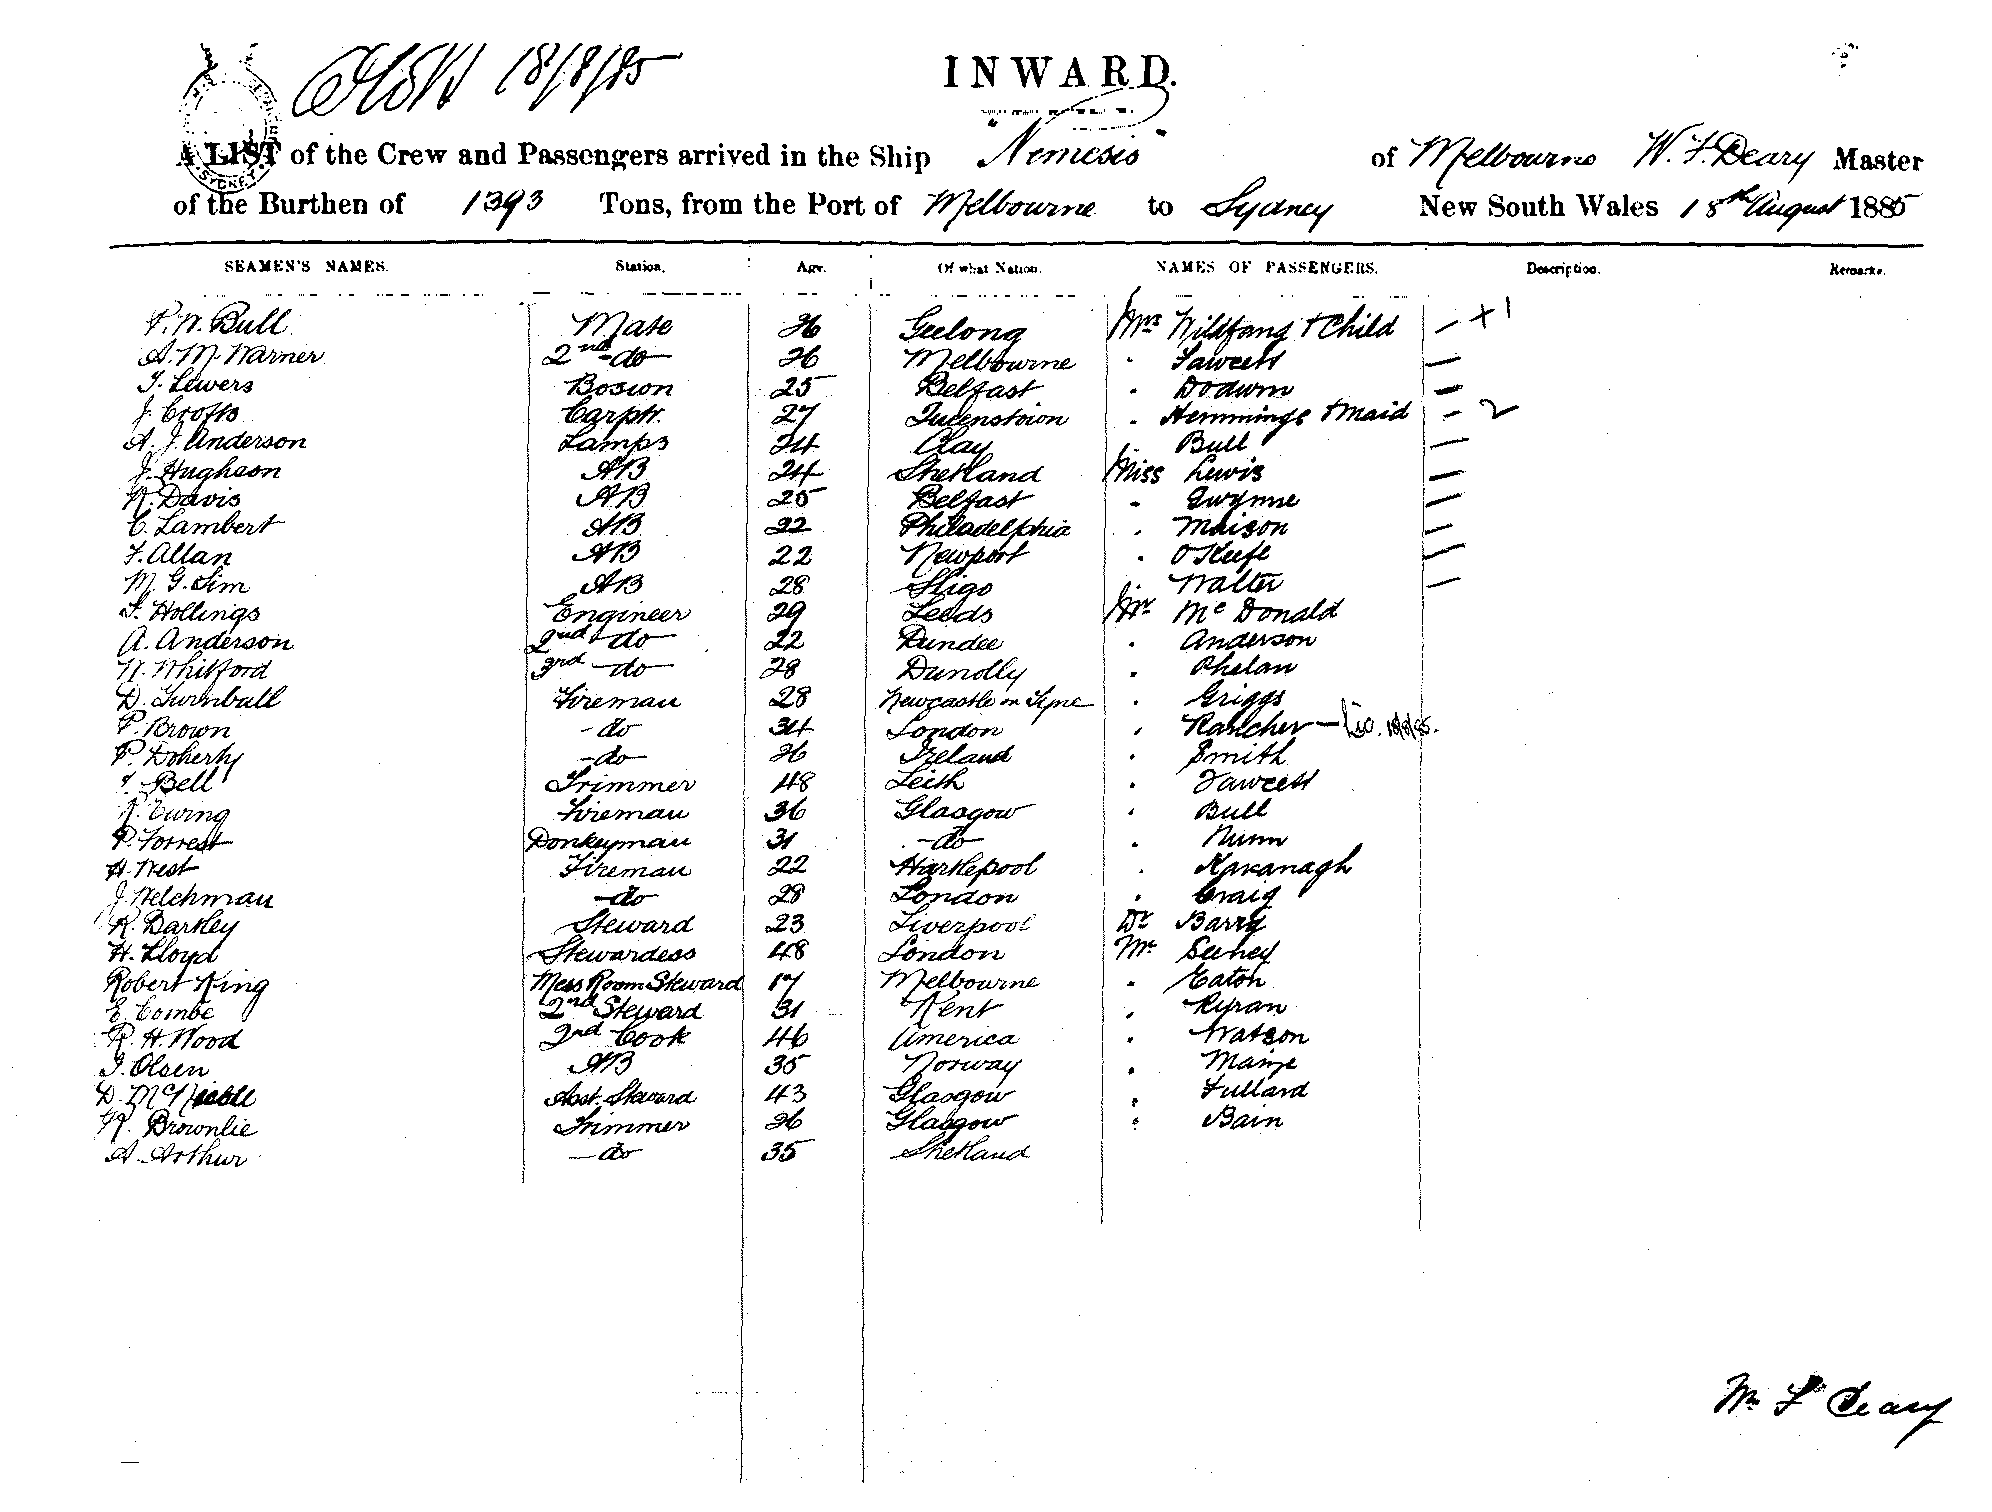 18/8/85
INWARD.
A LIST of the Crew and Passengers arrived in the Ship "Nemesis" of Melbourne W. F. Deary Master
of the Burthen of 1393 Tons, from the Port of Melbourne to Sydney New South Wales 18th August 1885
SEAMEN'S NAMES. Station. Age. Of what Nation. NAMES OF PASSENGERS. Description. Remarks.
P. W. Bull Mate 26 Geelong Mrs Wildfang + Child — + 1
A. M. Warner 2nd do 26 Melbourne " Fawcett —
T. Lewers Bosun 25 Belfast " Dodwm —
J. Crofts Carptr. 27 Queenstown " Hemmings + Maid - 2
A. J. Anderson Lamps 24 Clay Bull —
J. Hughson AB 24 Shetland Miss Lewis —
R. Davis AB 25 Belfast " Gwynne —
C. Lambert AB 22 Philadelphia " Maison —
F. Allan AB 22 Newport " O'Keefe —
M. G. Sim AB 28 Sligo Walter —
S. Hollings Engineer 29 Leeds Mr McDonald
A. Anderson 2nd do 22 Dundee " Anderson
W. Whitford 3rd do 28 Dundlly " Phelan
D. Turnbull Fireman 28 Newcastle on Tyne " Griggs
P. Brown do 34 London " Rancher —
P. Doherty do 26 Ireland " Smith
T. Bell Trimmer 48 Leith " Fawcett
R. Ewing Fireman 36 Glasgow " Bull
P. Forrest Donkeyman 31 do " Nunn
H. West Fireman 22 Hartlepool " Kavanagh
J. Welchman do 28 London " Craig
R. Barkley Steward 23 Liverpool Dr Barry
H. Lloyd Stewardess 48 London Mr Seeney
Robert King Mess Room Steward 17 Melbourne " Eaton
E. Combe 2nd Steward 31 Kent " Ryran
R. H. Wood 2nd Cook 46 America " Watson
J. Olsen AB 35 Norway " Maize
D. McNicoll Asst. Steward 43 Glasgow " Fullard
R. Brownlie Trimmer 26 Glasgow " Bain
A. Arthur do 35 Shetland
Wm F Deary